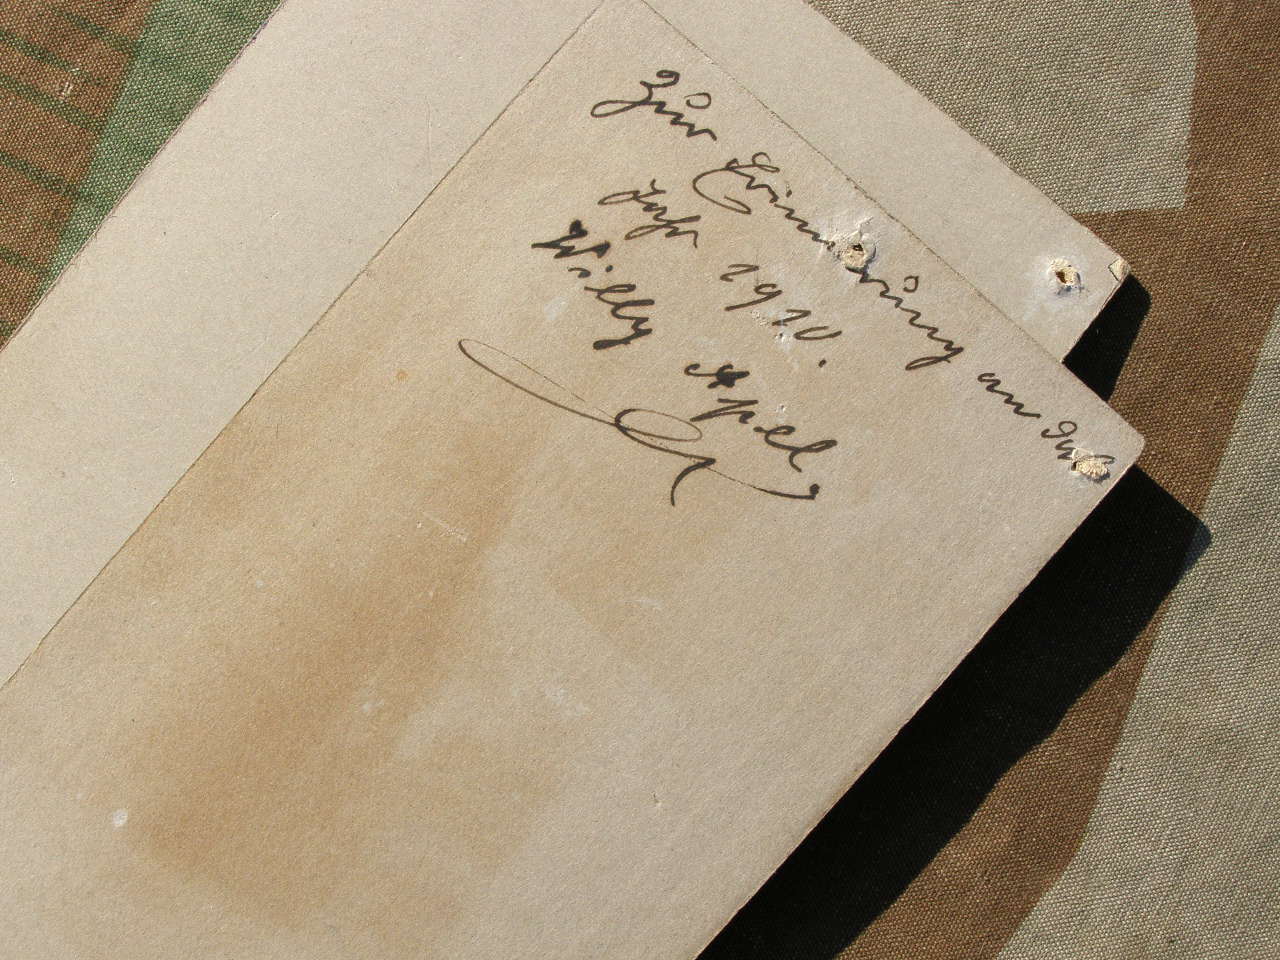 Zur Erinnerung an das
Jahr 1910.
Willy Apel.